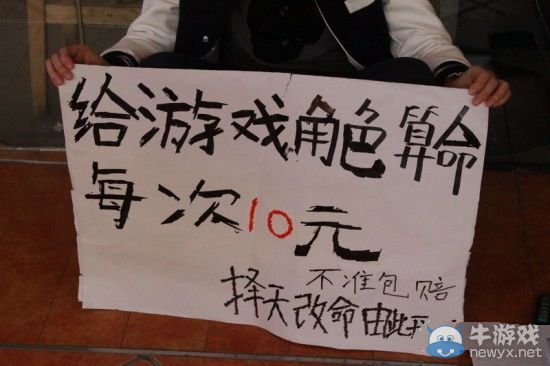 给游戏角色算命
每次10元
不准包赔
择天改命由此开
牛游戏
newyx.net